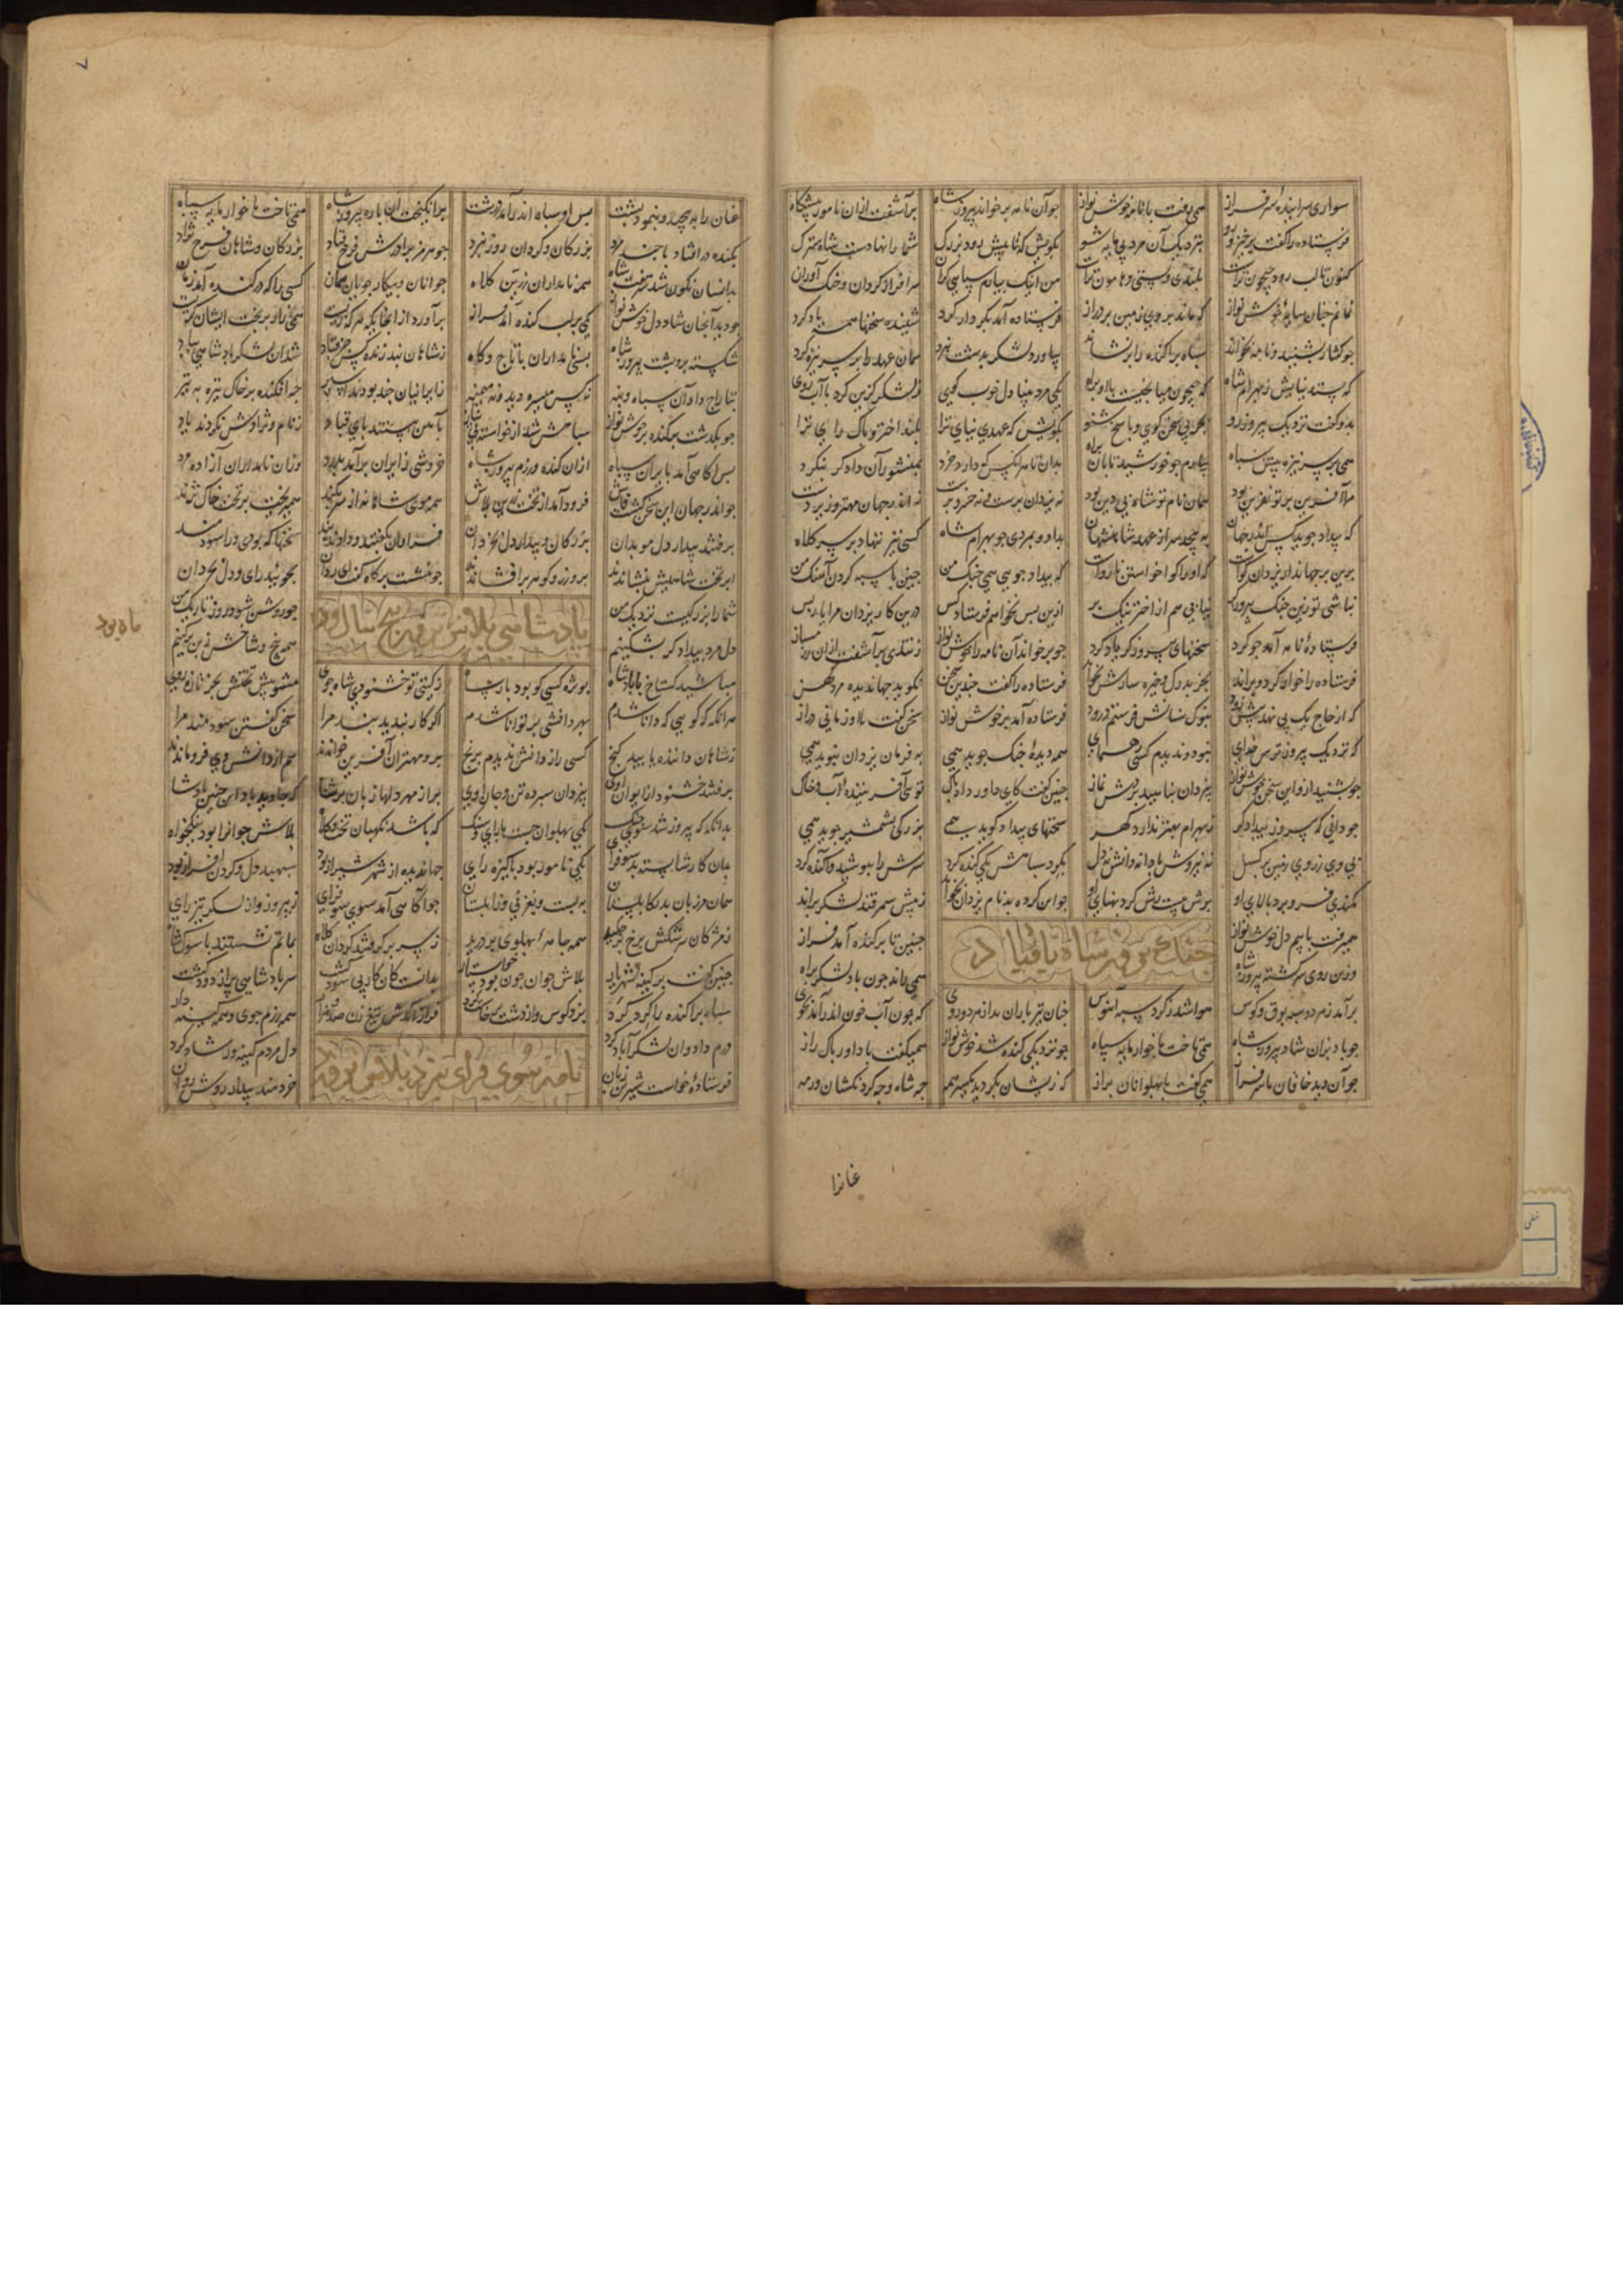 سواری سراینده سرفراز همی رفت با نامه خوش نواز جو آن نامه برخواند پیروز شاه برآشفت ازان نامور پیشگاه
فرستاده را کفت برخیز و رو بنزدیک آن مرد بی مایه شو بکویش که تا پیش رود برک شما را نهادست شاه سترک
کنون تا لب رود جیحون تراست بلندی و پستی و هامون تراست من اینک بیارم سپاهی کران سرافراز کردان و جنک آوران
نمانم جنان سایه خوش نواز که ماند بروی زمین بر دراز فرستاده آمد بکردار کرد شنیده سخنها همه یاد کرد
جو کفتار بشنید و نامه بخواند سپاه پراکنده را برنشاند بیاورد لشکر بدشت نبرد همان عهد را بر سر نیزه کرد
که بستد نیایش ز بهرام شاه که جیحون میانجیست بالا و راه یکی مرد بینا دل خوب کویی ز لشکر کزین کرد با آب روی
بدو کفت نزدیک پیروز رو بجربی سخن کوی و پاسخ شنو بکویش که عهد نیای ترا بلند اختر و پاک رای ترا
همی بر سر نیزه پیش سپاه بیارم جو خورشید تابان براه بدان تا هر انکس که دارد خرد بمنشور آن دادکر بنکرد
مرا آفرین بر تو نفرین بود همان نام تو شاه بی دین بود نه یزدان پرست و نه خسرو پرست نه اندر جهان مهتر و زیردست
که بیداد جوید کس اندر جهان بپیچد سر از عهد شاهنشهان بداد و بمردی جو بهرام شاه کسی نیز ننهاد بر سر کلاه
برین بر جهاندار یزدان کواست که او را کوا خواستن نارواست که بیداد جویی همی جنک من جنین با سپه کردن آهنک من
نباشی تو زین جنک پیروزکر نیابی هم از اختر نیک بر ازین پس نخواهم فرستاد کس درین کار یزدان مرا یار بس
فرستاده نامه آمد جو کرد سخنهای پیروزکر یاد کرد جو برخواند آن نامه را خوش نواز ز تندی برآشفت ازان
فرستاده را فرستاده را کفت جندین سخن نکوید جهاندیده مرد کهن
که از جاج یک پی نهد پیش رود بنوک سنانش فرستم درود فرستاده آمد بر خوش نواز سخن کفت با او زمانی دراز
که نزدیک پیروز ترس خدای نبود و ندیدم کسی رهنمای همه دیده جنک جوید همی به فرمان یزدان نپوید همی
جو بشنید ازو این سخن خوش نواز بیزدان پناهید و بردش نماز جنین کفت کای داور داد و پاک توی آفریننده آب و خاک
جو دانی که پیروز بیدادکر ز بهرام بهتر ندارد هنر سخنهای بیداد کوید همی بزرکی بشمشیر جوید همی
پی وی ز روی زمین برکسل نه نیروش بادا نه دانش نه دل بکرد سپاهش یکی کنده کرد سرش را بپوشید و آکنده کرد
کمندی فرو برد بالای او برش بیست رش کرد پهنای او جو این کرده بد نام یزدان بخواند ز پیش سمرقند لشکر براند
همیرفت با بیم دل خوش نواز جنین تا بر کنده آمد فراز
وزین روی سرکشته پیروز شاه همی راند جون باد لشکر براه
جنک پیروز شاه با
برآمد ز هر دو سپه بوق و کوس هوا شد ز کرد سپه آبنوس جنان تیرباران بد از هر دو روی که جون آب خون اندر آمد بجوی
جو باد بزان شاد پیروز شاه همی تاخت با خوارمایه سپاه جو نزدیکی کنده شد خوش نواز همیکفت با داور پاک راز
جو آن دید خاقان همی کفت با پهلوانان براز که زیشان بکردید یکسر همه جه شاه و جه کردنکشان و رمه
عنانرا
۷
عنان را بپیچید و بنمود پشت پس او سپاه اندر آمد درشت برانکیخت آن باره پیروز شاه همی تاخت با خوارمایه سپاه
بکنده در افتاد با جند مرد بزرکان و کردان روز نبرد جو هرمز برادرش و فرخ قباد بزرکان و شاهان فرخ نژاد
بدانسان نکون شد سر هفت شاه همه نامداران زرین کلاه جوانان و پیکار جویان جهان کسی را که در کنده آمد زمان
جو دید آنجنان شاد دل خوش نواز یکی بر لب کنده آمد فراز برآورد ازانجایکه هر که زیست همی بر بخت ایشان کریست
شکسته برو پشت پیروز شاه نامداران با تاج و کاه ز شاهان نبد زنده کس جز قباد شد آن لشکر و پادشاهی بباد
بتاراج داد آن سپاه و بنه نه کس میسره دید و نه میمنه ز ایرانیان جند بودند اسیر جه افکنده بر خاک تیره به تیر
جو بکذشت بر کنده بر خوش نواز سپاهش شد از خواسته بی نیاز بآهن ببستند پای قباد ز نام و نژادش نکردند یاد
پس آکاهی آمد بایران سپاه ازان کنده و رزم پیروز شاه خروشی ز ایران برآمد بدرد وزان نامداران آزاده مرد
جو اندر جهان این سخن کشت فاش فرود آمد از تخت زرین بلاش همه موی شاهانه از سر بکند همی ریخت بر تخت خاک نژند
برفتند بیدار دل موبدان بزرکان و بیدار دل بخردان فراوان بکفتند و دادند پند سخنها که بودی ورا سودمند
ابر تخت شاهیش بنشاندند برو زر و کوهر برافشاندند جو بنشست بر کاه کفت ای ردان بجویید رای و دل بخردان
شما را بزرکیست نزدیک من جو روشن شود روز تاریک من
ماه بود
پادشاهی بلاش پیروز پنج سال بود
دل مرد بیدادکر بشکنیم همه بیخ و شاخش ز بن برکنیم
مباشید کستاخ با پادشاه بویژه کسی کو بود پارسا ز کیتی تو خشنودی شاه جوی مشو پیش تختش بجز تازه روی
هر انکه که کویی که دانا شدم بهر دانشی بر توانا شدم اکر کار بندید پند مرا سخن کفتن سودمند مرا
ز شاهان داننده یابید کنج کسی را ز دانش ندیدم برنج برو مهتران آفرین خواندند هم از دانش وی فرو ماندند
برفتند خشنود از ایوان اوی بیزدان سپرده تن و جان اوی پر از مهر دلها زبان پر ثنا که جاوید باد این جنین پادشا
بدانکه که پیروز شد سوی جنک یکی پهلوان جست با رای و سنک که باشد نکهبان تخت و کلاه بلاش جوانرا بود نیکخواه
بدان کار شایسته بد سوفرای یکی نامور بود پاکیزه رای جهاندیده از شهر شیراز بود سپهبد دل و کردن افراز بود
همان مرزبان بد بکابلستان به بست و بغزنی و زابلستان جو آکاهی آمد سوی سوفرای ز پیروز وز لشکر تیز رای
ز مژکان سرشکش برخ برجکید همه جامه پهلوی بردرید ز سر برکرفتند کردان کلاه بماتم نشستند با سوک شاه
جنین کفت بر کینه شهریار بلاش جوان جون بود خواستار بدانست کان کار بی سود کشت سر پادشاهی پر از دود کشت
سپاه پراکنده را کرد کرد بزد کوس وز دشت برخاست کرد فراز آمدش تیغ زن صد هزار همه رزم جوی و همه کینه دار
درم داد وان لشکر آباد کرد دل مردم کینه ور شاد کرد
نامه سوی فرای نزد بلاش پیروز
فرستاده خواست شیرین زبان خردمند بیدار روشن روان